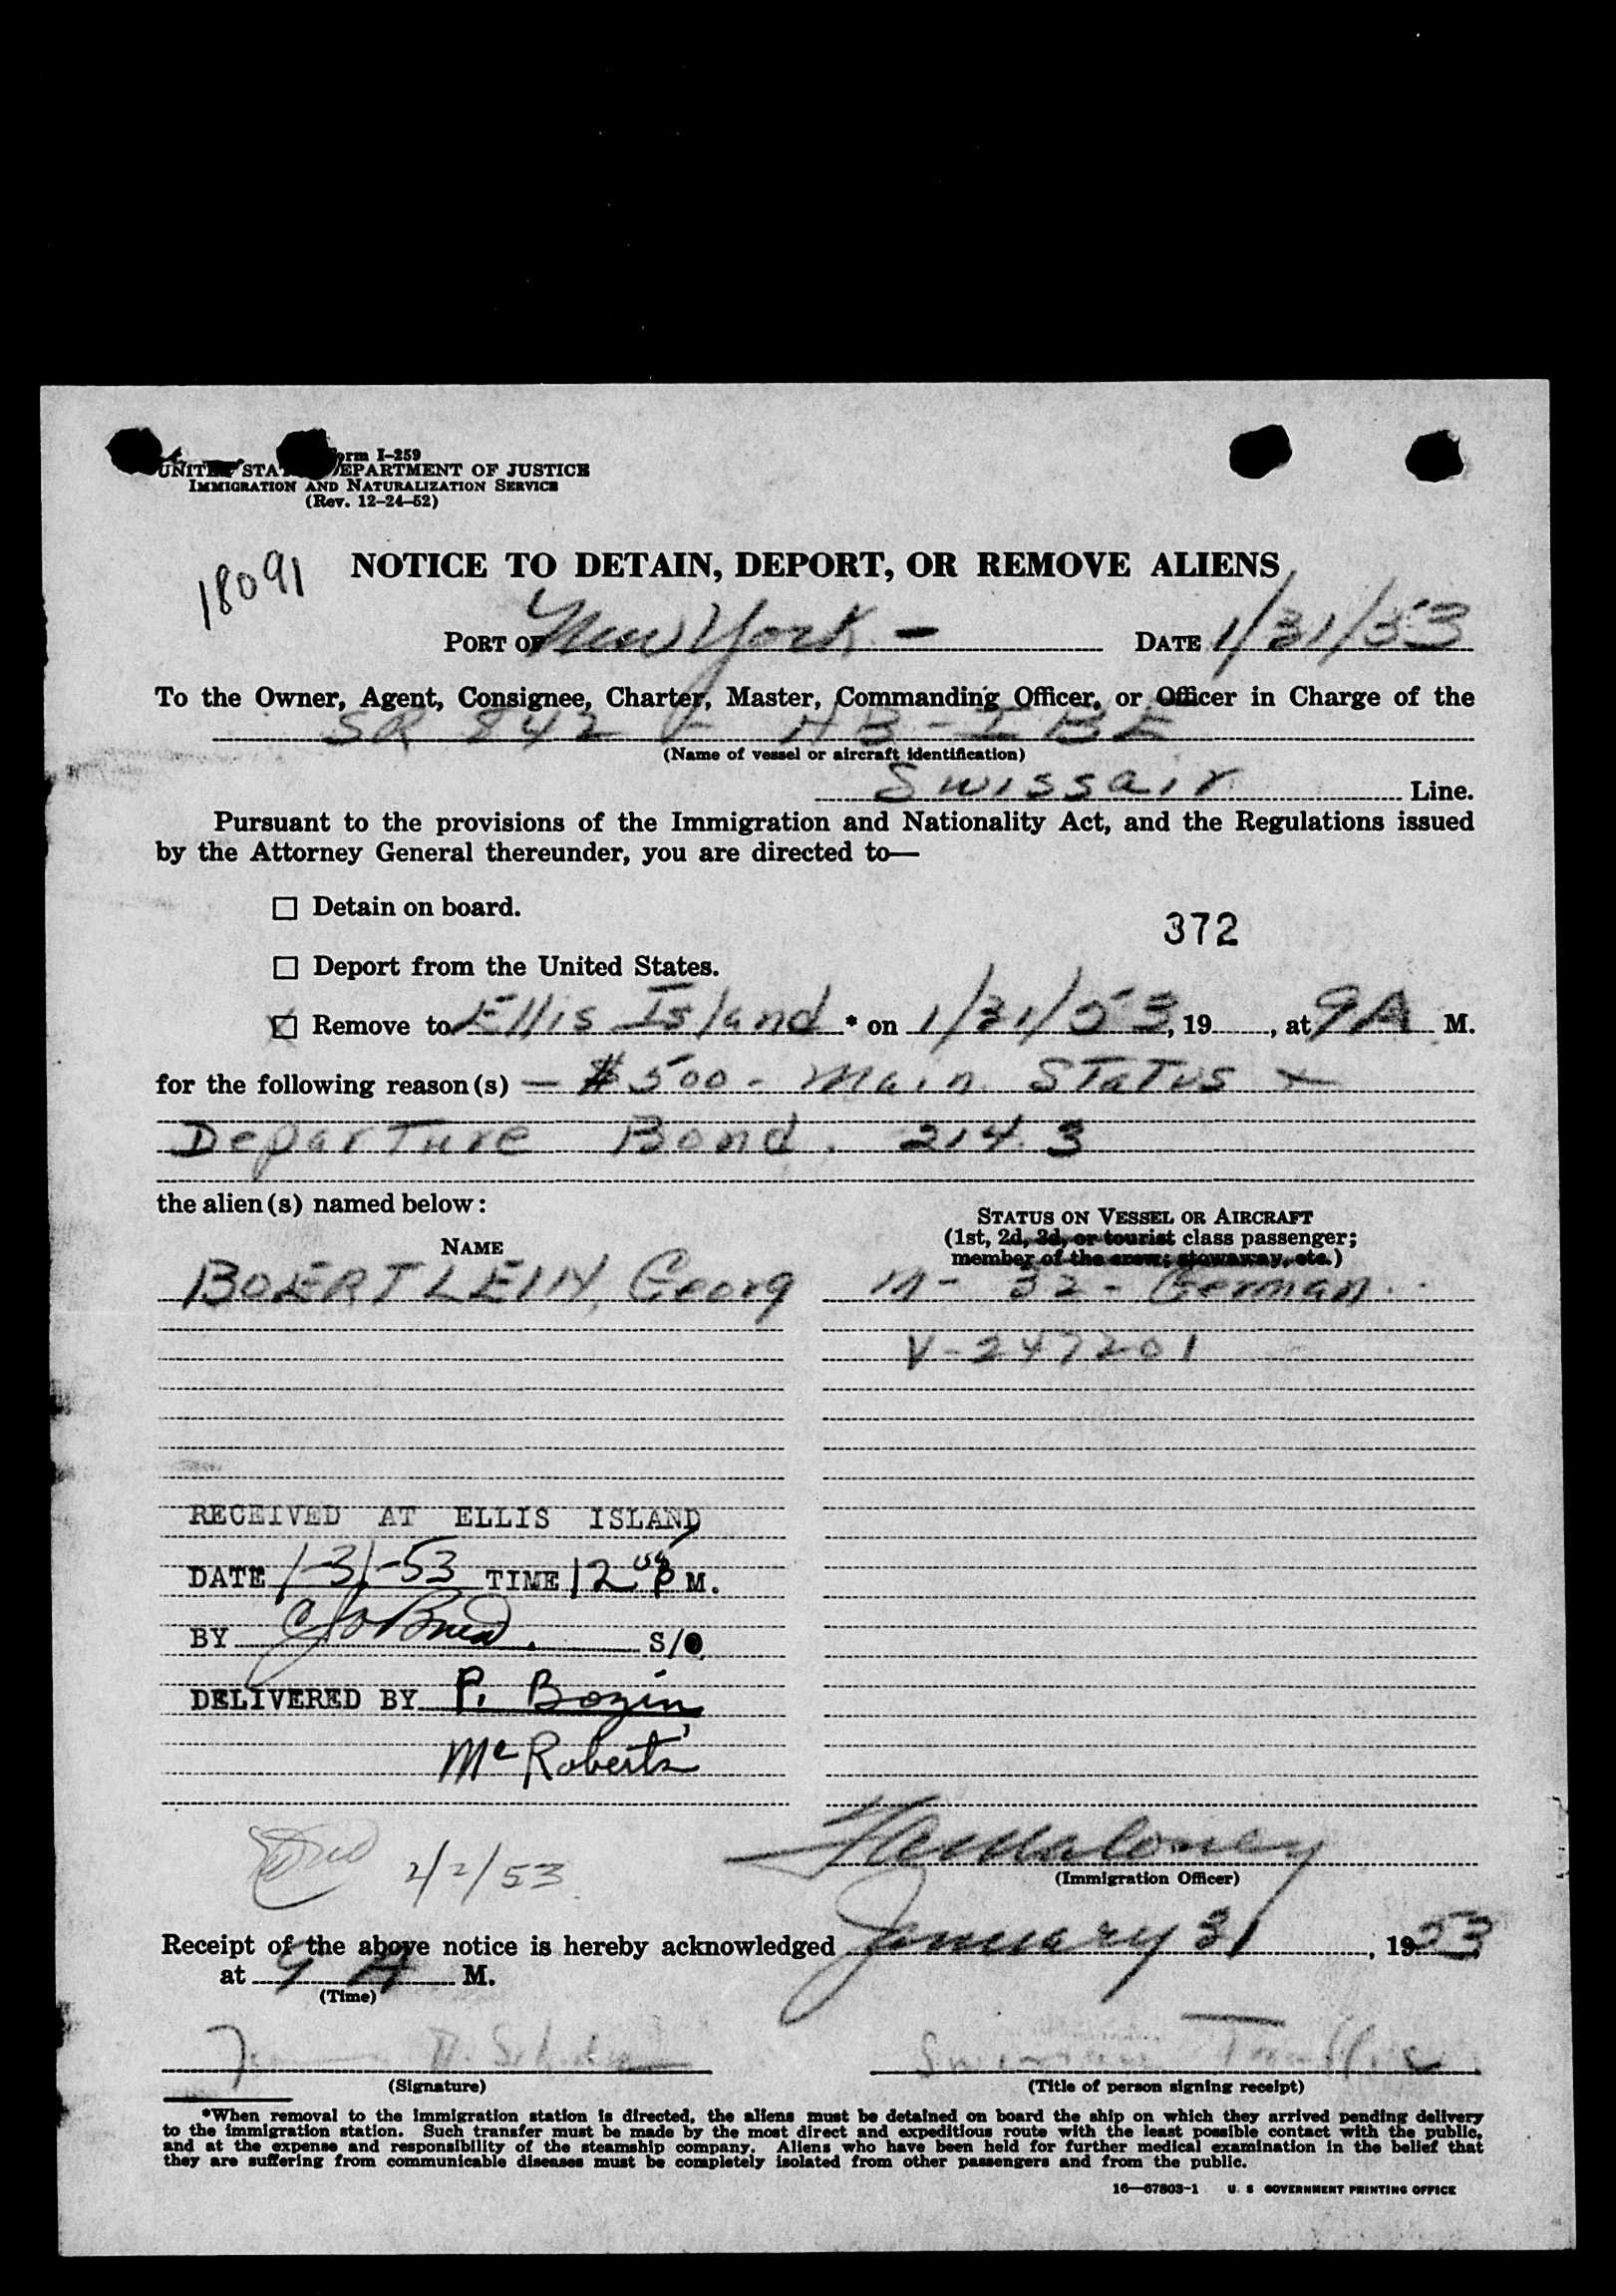 Form I-259
UNITED STATES DEPARTMENT OF JUSTICE
IMMIGRATION AND NATURALIZATION SERVICE
(Rev. 12-24-52)
18091
NOTICE TO DETAIN, DEPORT, OR REMOVE ALIENS
PORT OF New York - DATE 1/31/53
To the Owner, Agent, Consignee, Charter, Master, Commanding Officer, or Officer in Charge of the
SR 842 HB-IBE
(Name of vessel or aircraft identification)
Swissair Line.
Pursuant to the provisions of the Immigration and Nationality Act, and the Regulations issued
by the Attorney General thereunder, you are directed to—
☐ Detain on board.
372
☐ Deport from the United States.
☒ Remove to Ellis Island * on 1/31/53, 19 , at 9 A M.
for the following reason(s) — $500 - Main Status +
Departure Bond. 214.3
the alien(s) named below:
STATUS ON VESSEL OR AIRCRAFT
(1st, 2d, 3d, or tourist class passenger;
NAME
member of the crew; stowaway, etc.)
BOERTLEIN, Georg M - 32 - German
V-247201
RECEIVED AT ELLIS ISLAND
DATE 1-31-53 TIME 12 P M.
BY S/O
DELIVERED BY P. Bozin
McRoberts
Maloney
2/2/53
(Immigration Officer)
Receipt of the above notice is hereby acknowledged January 31, 1953
at 9 A M.
(Time)
Traffic
(Signature) (Title of person signing receipt)
*When removal to the immigration station is directed, the aliens must be detained on board the ship on which they arrived pending delivery
to the immigration station. Such transfer must be made by the most direct and expeditious route with the least possible contact with the public,
and at the expense and responsibility of the steamship company. Aliens who have been held for further medical examination in the belief that
they are suffering from communicable diseases must be completely isolated from other passengers and from the public.
16—67803-1 U. S. GOVERNMENT PRINTING OFFICE